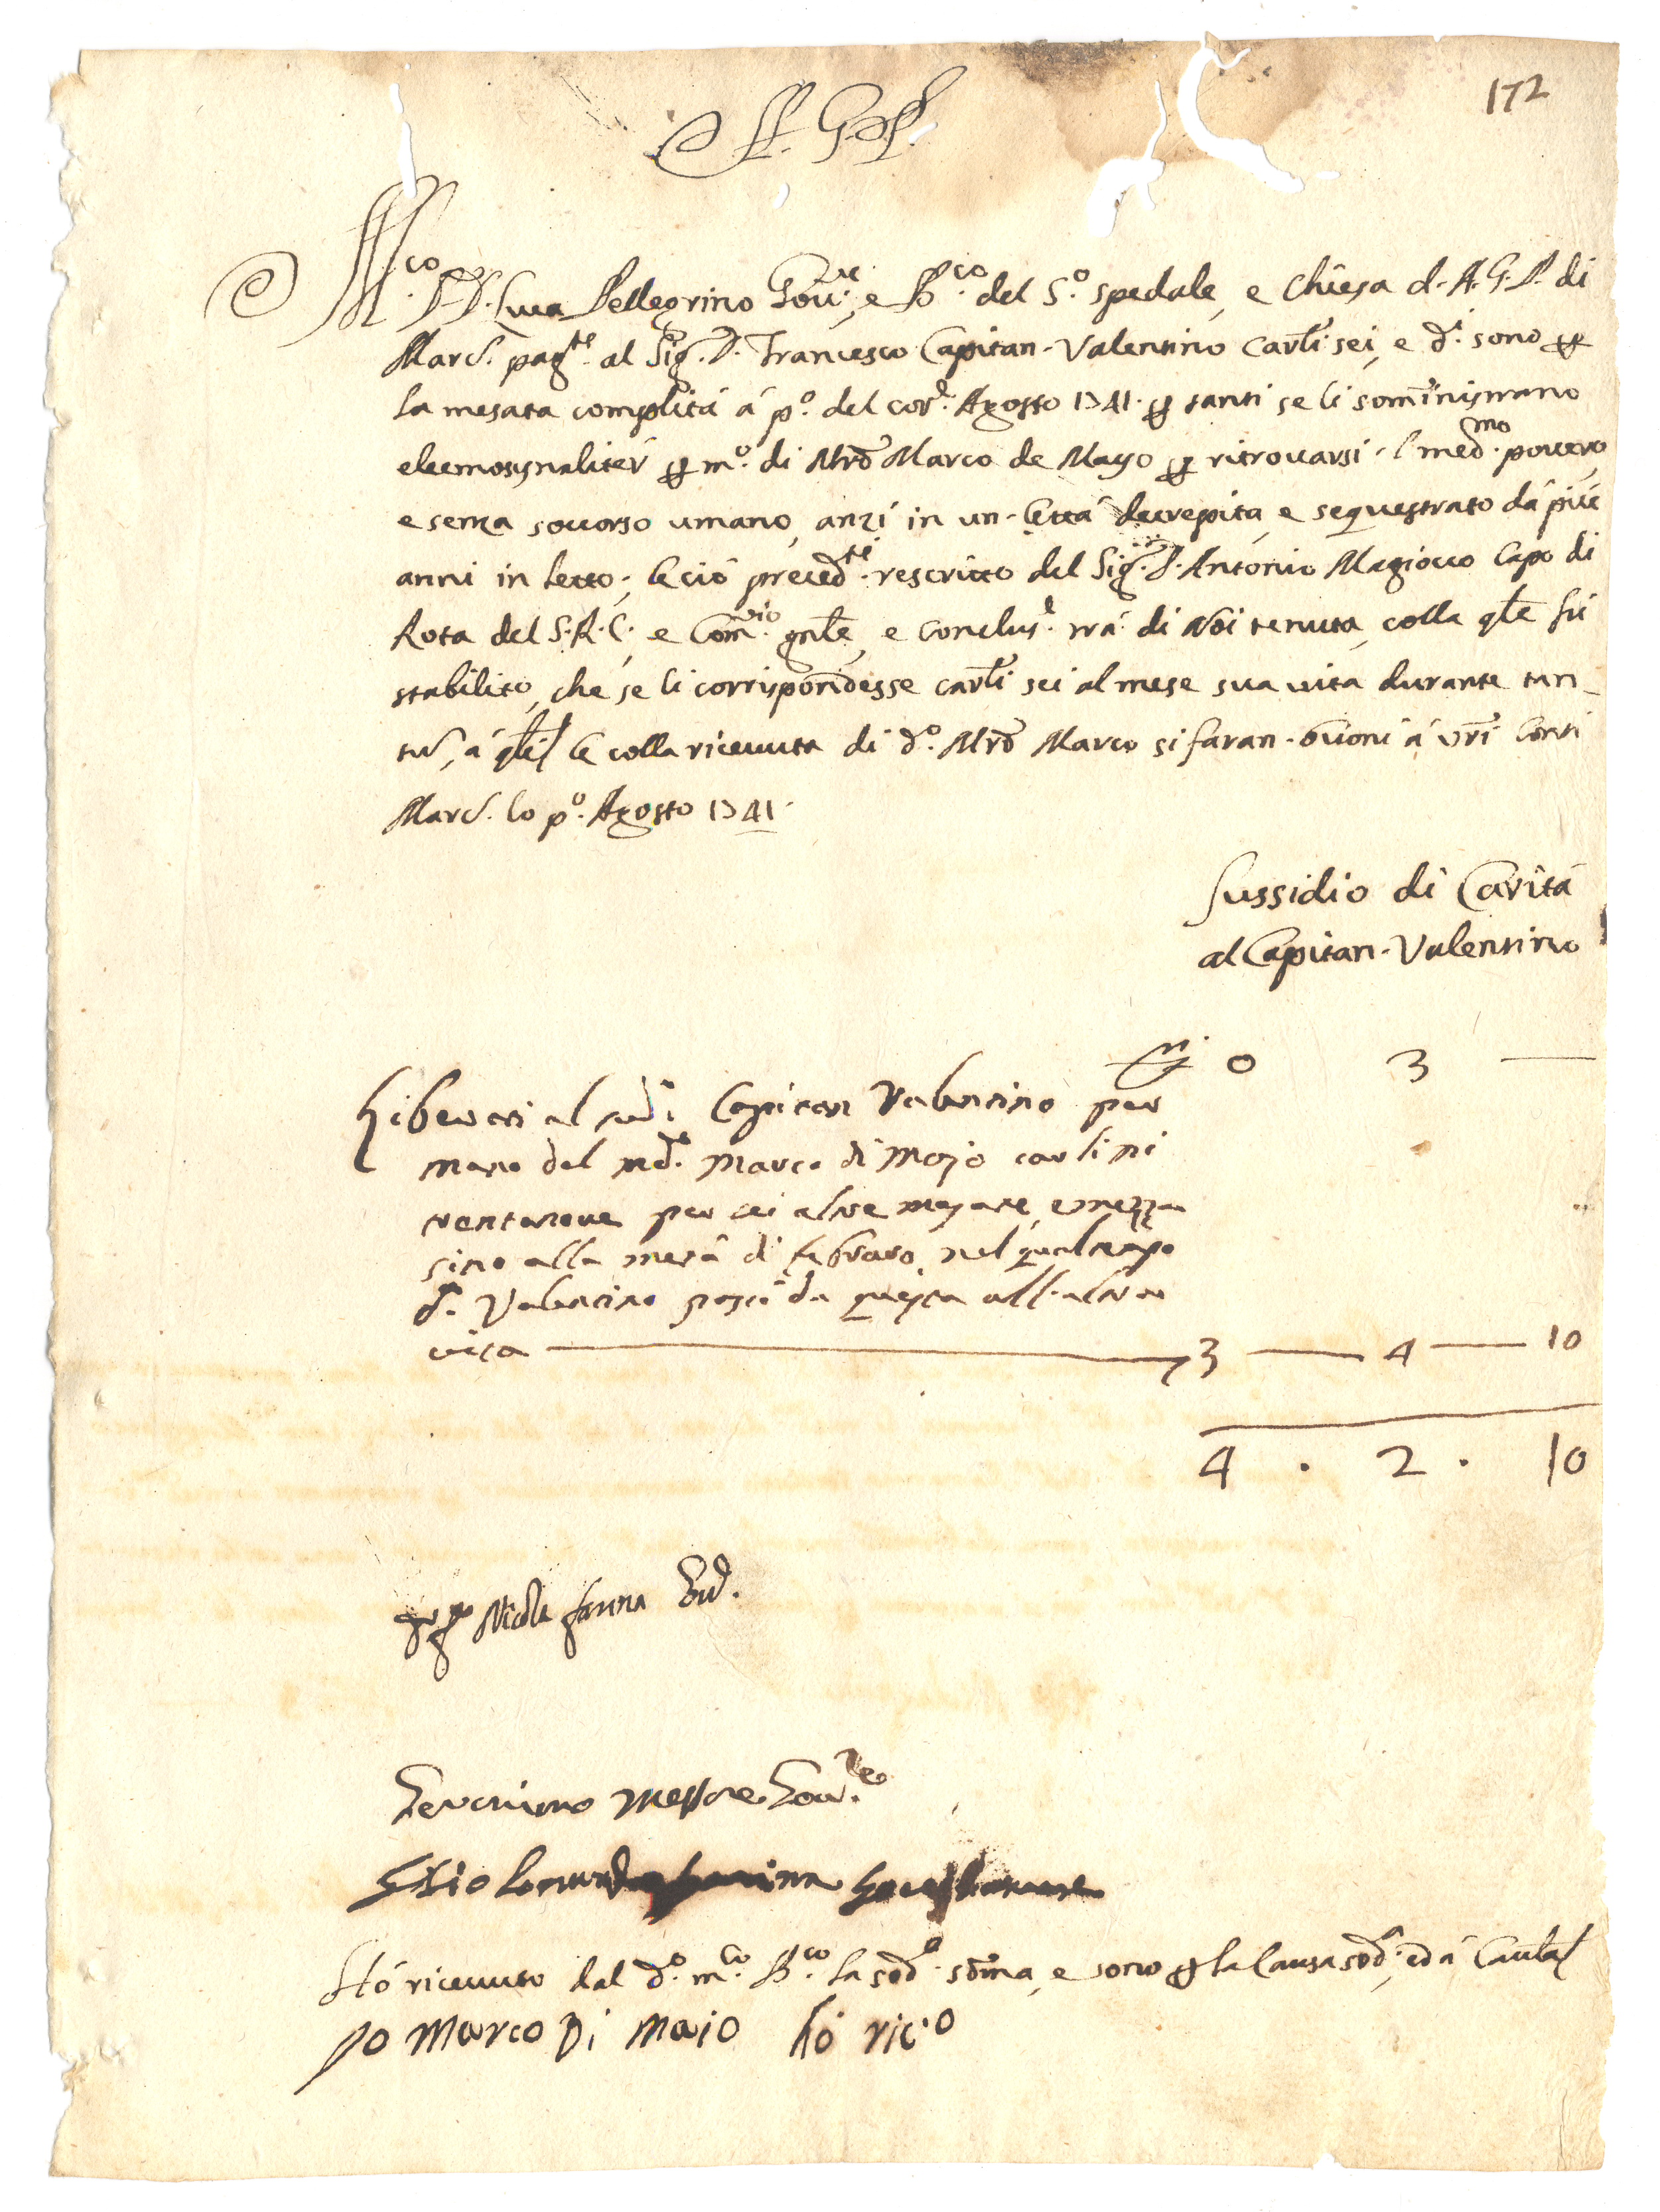 172
M.co D. Luca Pellegrino Gov.re, e B.co del S.o Spedale, e Chiesa d. A. G. P. di
Marc. pag.te al Sig. D. Francesco Capitan. Valentino Carlì sei, e d.i sono p
la mesata complita à p.o del cor. Agosto 1741. p tanti se li somministrano
eleemosynaliter p m.o di Mrõ Marco de Mayo p ritrovarsi l' med.mo povero,
e senza soccorso umano, anzi in un' età decrepita, e sequestrato dà più
anni in letto; e ciò preced.te rescritto del Sig. D. Antonio Magiocco Capo di
Rota del S. R. C. e Com.rio gnle, e conclus.e nrà di Noi tenuta, colla qle fù
stabilito, che se li corrispondesse carlì sei al mese sua vita durante tan_
tù, e colla ricevuta di d.o Mrõ Marco si faran. buoni à vrì Conti
Marc. lo p.o Agosto 1741.
Sussidio di Carità
al Capitan. Valentino
0 3 —
Liberati al sud. Capitan Valentino per
mano del Marco di Mojo carlini
trentanove per sei altre mesate, e mezza
sino alla metà di febraro, nel qual tempo
d. Valentino passò da questa all'altra
vita — 3 — 4 — 10
4 . 2 . 10
Nicola farina
Geronimo Mestre Gov.re
Hò ricevuto dal d.o m.co B.co la sod.a somma, e sono p la Causa sod.a, ed à Cautla
Io Marco Di Maio hò ric.o